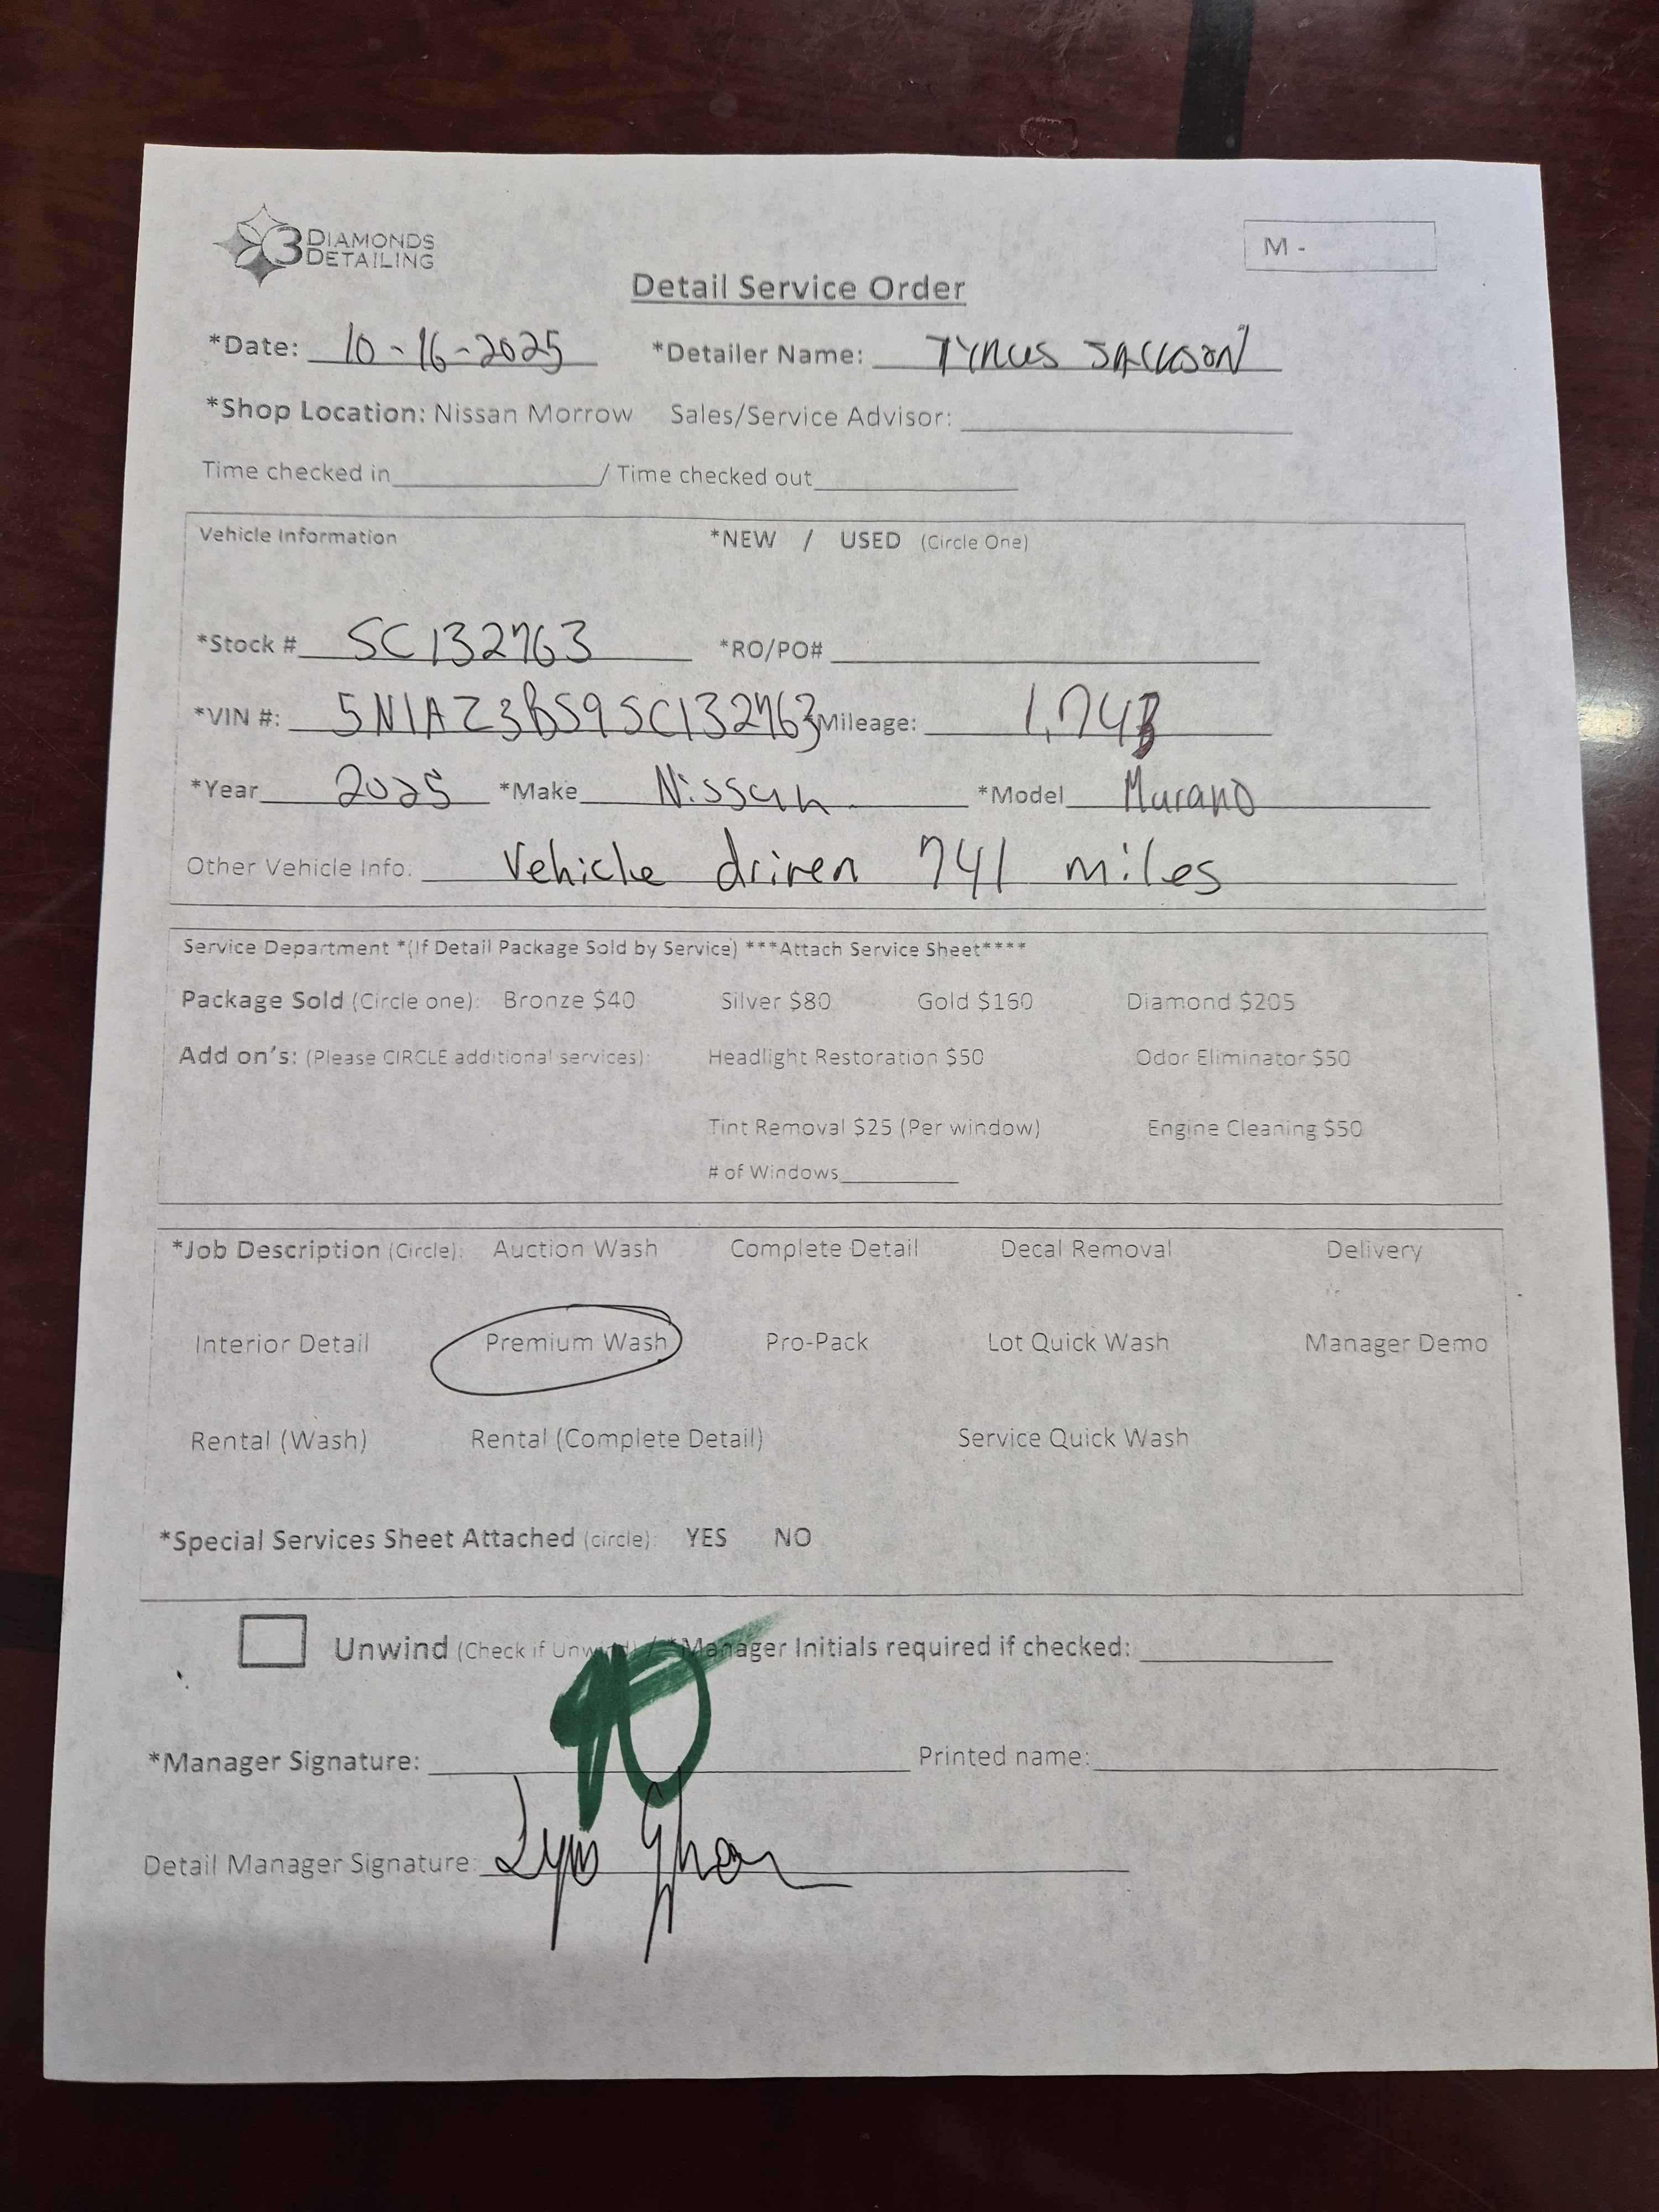 3 DIAMONDS
DETAILING
M -
Detail Service Order
*Date: 10-16-2025 *Detailer Name: TYRUS JACKSON
*Shop Location: Nissan Morrow Sales/Service Advisor:
Time checked in / Time checked out
Vehicle Information *NEW / USED (Circle One)
*Stock # SC132763 *RO/PO#
*VIN #: 5N1AZ3BS9SC132763 Mileage:
*Year 2025 *Make Nissan *Model Murano
Other Vehicle Info: Vehicle driven 741 miles
Service Department *(If Detail Package Sold by Service) ***Attach Service Sheet****
Package Sold (Circle one): Bronze $40 Silver $80 Gold $160 Diamond $205
Add on's: (Please CIRCLE additional services): Headlight Restoration $50 Odor Eliminator $50
Tint Removal $25 (Per window) Engine Cleaning $50
# of Windows
*Job Description (Circle): Auction Wash Complete Detail Decal Removal Delivery
Interior Detail Premium Wash Pro-Pack Lot Quick Wash Manager Demo
Rental (Wash) Rental (Complete Detail) Service Quick Wash
*Special Services Sheet Attached (circle): YES NO
Unwind (Check if Unwind) / *Manager Initials required if checked:
*Manager Signature: Printed name:
Detail Manager Signature: